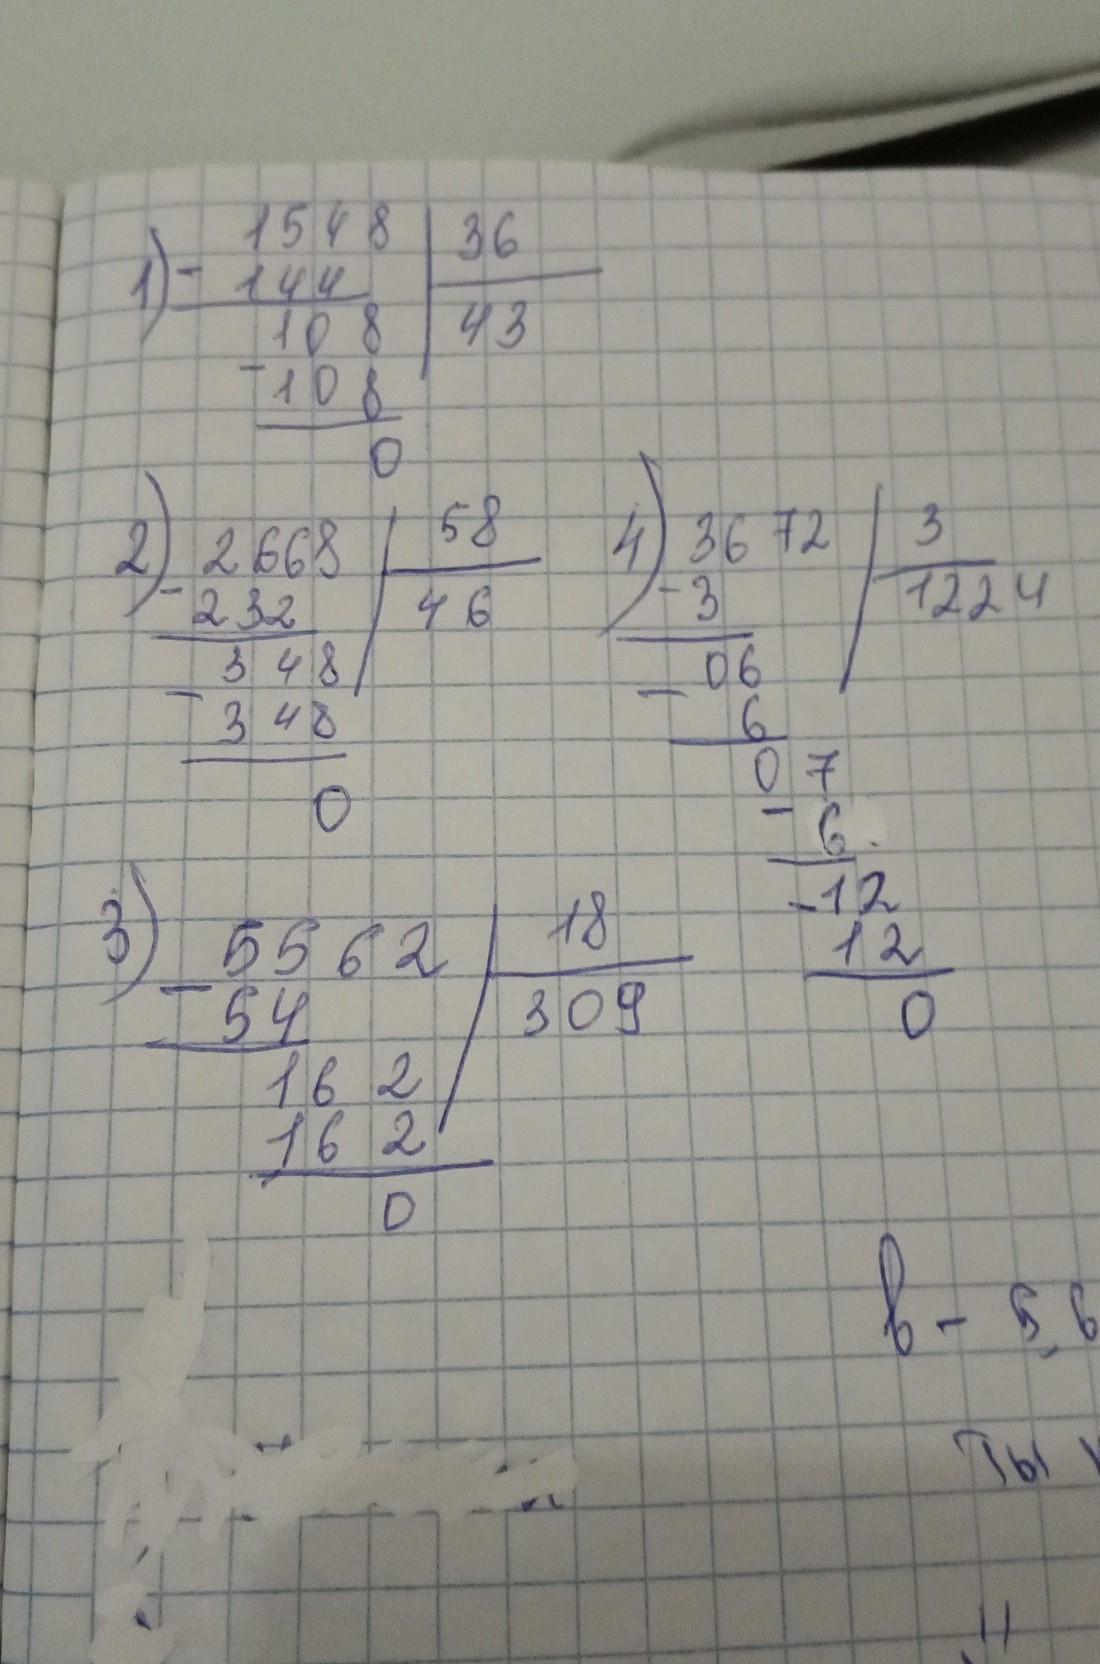 1) 1548 | 36
- 144 | 43
108
- 108
0
2) 2668 | 58
- 232 | 46
348
- 348
0
4) 3672 | 3
- 3 | 1224
06
- 6
07
- 6
- 12
12
0
3) 5562 | 18
- 54 | 309
162
162
0
в - 5,6
ты